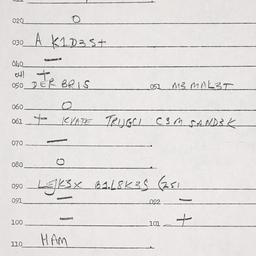 020 O
030 A K1D3St
040 —
041 +
050 DER BRIS 052 M3 MAL3T
060 O
061 + KVATE TRIJGCI C3M SAND3K
070 —
080 O
090 LEJKSX
091 — 092 —
100 — 101 +
110 HAM